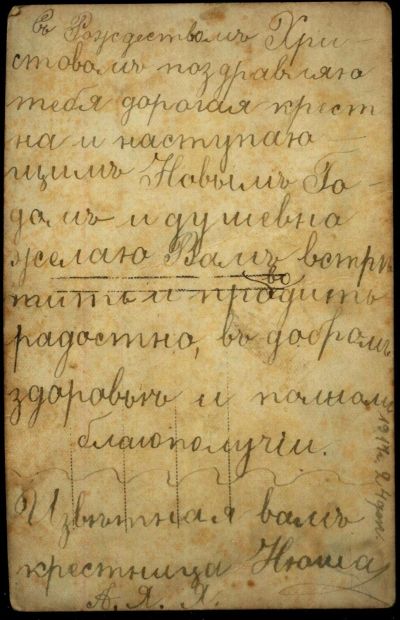 Съ Рождествомъ Хри-
стовымъ поздравляю
тебя дорогая крест
на и наступаю-
щимъ Новымъ Го-
домъ и душевно
желаю Вамъ встрѣ
тить и продить
во
радостно, въ добромъ
здоровьи и полномъ
благополучіи.
Извѣстная вамъ
крестница Нюша
А. Я. Я.